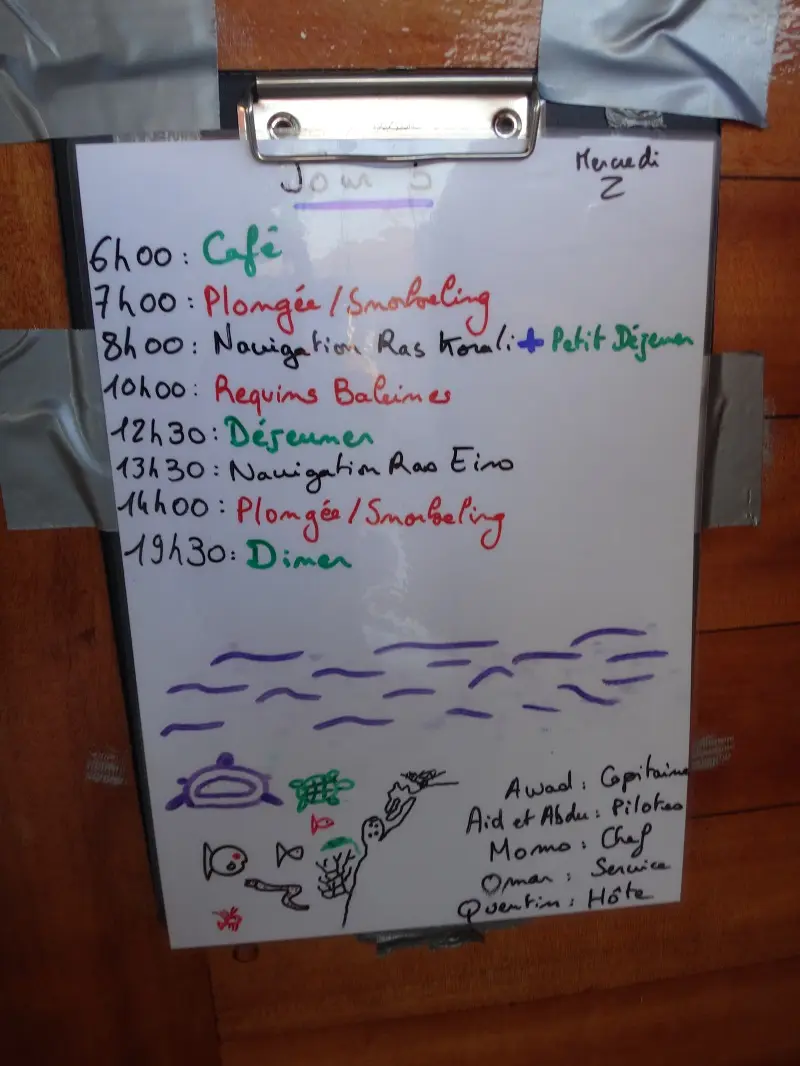 Jour 5
Mercredi
2
6h00 : Café
7h00 : Plongée / Snorkeling
8h00 : Navigation Ras Korali + Petit Déjeuner
10h00 : Requins Baleines
12h30 : Déjeuner
13h30 : Navigation Ras Eiro
14h00 : Plongée / Snorkeling
19h30 : Diner
Awad : Capitaine
Aid et Abdu : Pilotes
Momo : Chef
Omar : Service
Quentin : Hôte